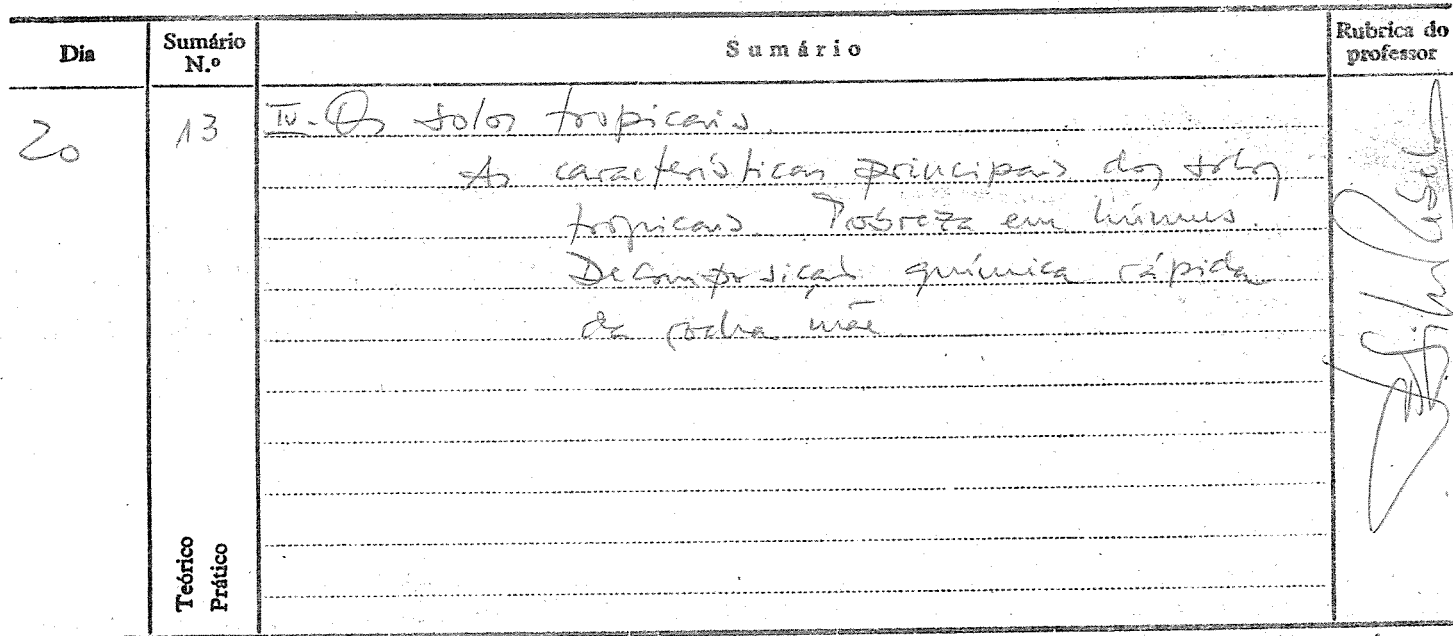 Dia
Sumário N.º
Sumário
Rubrica do professor
20
13
IV - Os solos tropicais.
As características principais dos solos
tropicais. Pobreza em húmus.
Decomposição química rápida
da rocha mãe.
Teórico
Prático